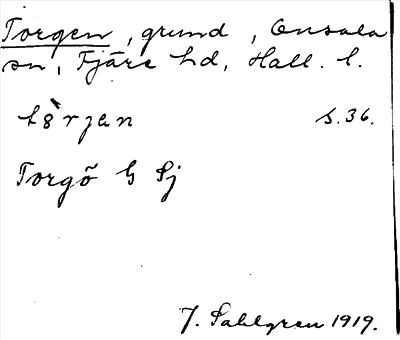 Torgen, grund, Onsala
sn, Fjäre hd, Hall. l.
tòrjan s. 36.
Torgö G Sj
J. Sahlgren 1919.